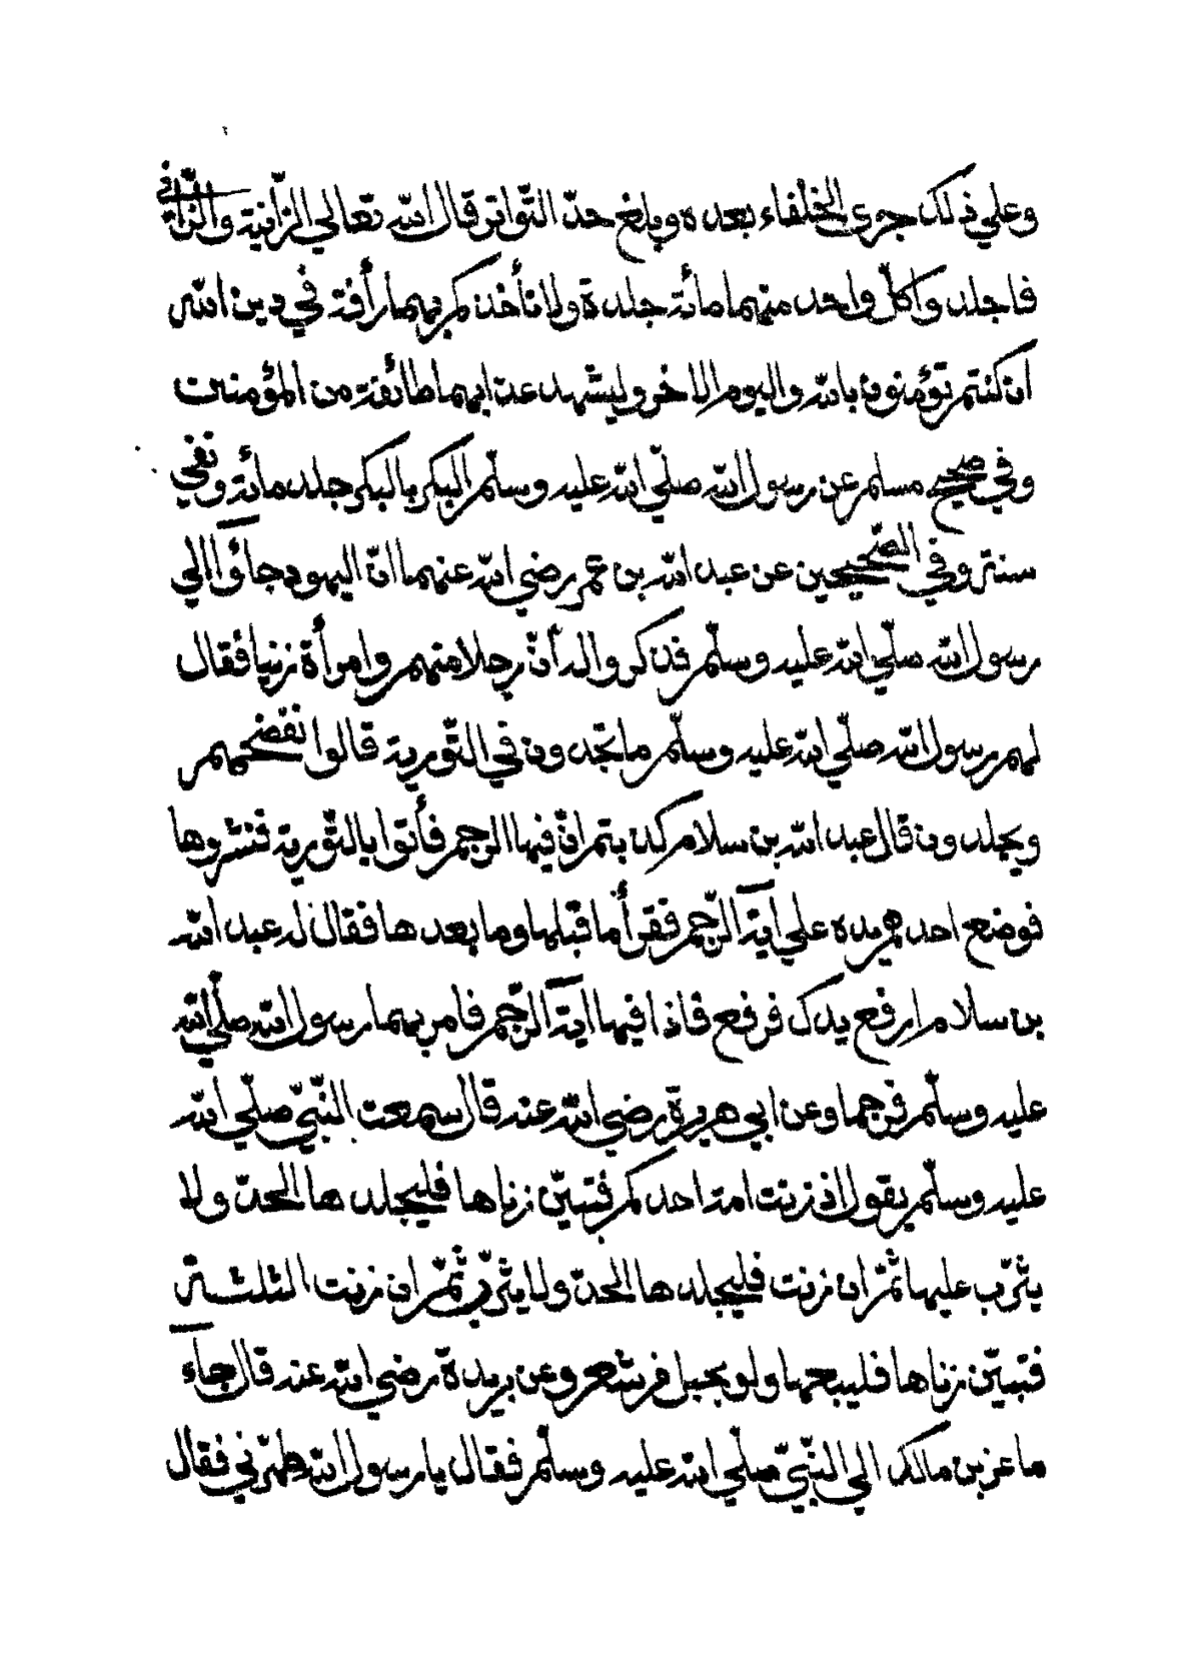 وعلي ذلك جرى الخلفاء بعده وبلغ حدّ التّواتر قال الله تعالي الزّانية والزّاني
فاجلدوا كلّ واحد منهما مائة جلدة ولا تأخذكم بهما رأفة في دين الله
ان كنتم تؤمنون بالله واليوم الاخر وليشهد عذابهما طائفة من المؤمنين
وفي صحيح مسلم عن رسول الله صلّي الله عليه وسلّم البكر بالبكر جلد مائة ونفي
سنة وفي الصّحيحين عن عبد الله بن عمر رضي الله عنهما انّ اليهود جاؤا الي
رسول الله صلّي الله عليه وسلّم فذكروا له أنّ رجلا منهم وامرأة زنيا فقال
لهم رسول الله صلّي الله عليه وسلّم ما تجدون في التّورية قالوا نفضحهم
ويجلدون قال عبد الله بن سلام كذبتم انّ فيها الرجم فأتوا بالتّورية فنشروها
فوضع احدهم يده علي آية الرّجم فقرأ ما قبلها وما بعدها فقال له عبد الله
بن سلام ارفع يدك فرفع فاذا فيها آية الرّجم فامر بهما رسول الله صلّي الله
عليه وسلّم فرجما وعن ابي هريرة رضي الله عنه قال سمعت النّبيّ صلّي الله
عليه وسلّم يقول اذ زنت امة احدكم فتبيّن زناها فليجلدها الحدّ ولا
يثرّب عليها ثمّ ان زنت فليجلدها الحدّ ولا يثرّب ثمّ ان زنت الثلثة
فتبيّن زناها فليبعها ولو بحبل فر شعر وعن بريدة رضي الله عنه قال جآء
ماعز بن مالك الي النّبيّ صلّي الله عليه وسلّم فقال يا رسول الله طهّرني فقال